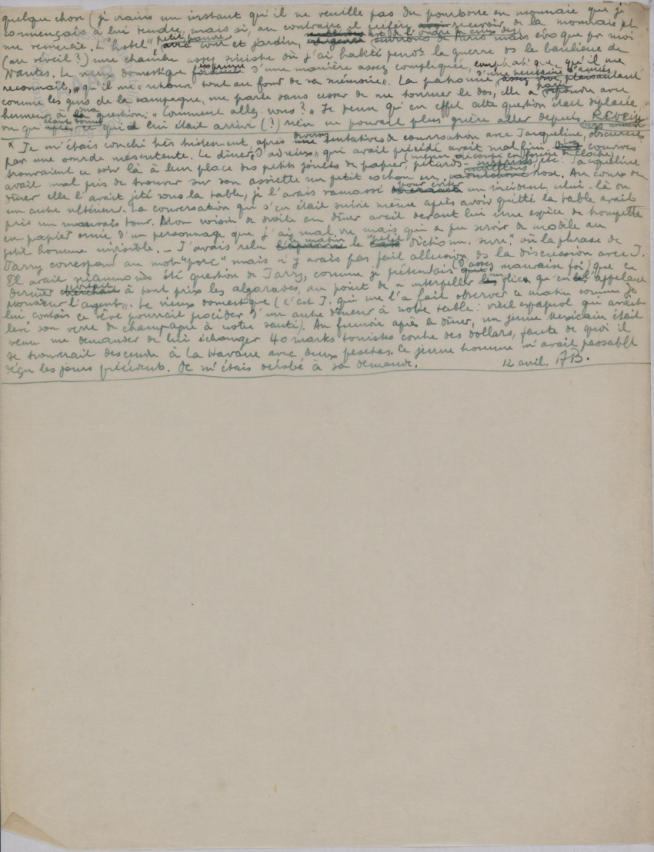 quelque chose (je crains un instant qu'il ne veuille pas du pourboire en monnaie que je
commençais à lui rendre, mais si, au contraire il préfère recevoir de la monnaie et
me remercie. L'"hôtel", petit pauvre avec cour et jardin, évoque pour moi
(au réveil ?) une chambre assez sinistre où j'ai habité pendt la guerre ds la banlieue de
Nantes. Le vieux domestique exprime d'une manière assez compliquée, emphatique, qu'il me
reconnaît, qu'il me retrouve tout au fond de sa mémoire. La patronne
comme les gens de la campagne, me parle sans cesser de me tourner le dos, elle a répondu avec
humeur à ma question: "Comment allez-vous?" Je pense qu'en effet cette question était déplacée
vu qu'après ce qui lui était arrivé (?) rien ne pouvait plus guère aller depuis. Réveil
* Je m'étais couché très tristement, après diverses tentatives de conversation avec Jacqueline,
par une sourde mésentente. Le dîner d'adieux, qui avait précédé avait mal fini. convives
trouvaient ce soir-là à leur place des petits jouets de papier, pétards, etc. Jacqueline
avait mal pris de trouver sur son assiette un petit cochon en rose. Au cours du
dîner elle l'avait jeté sous la table, je l'avais ramassé pour éviter un incident, celui-là ou
un autre ultérieur. La conversation qui s'en était suivie même après avoir quitté la table avait
pris un mauvais tour. Mon voisin de droite au dîner avait devant lui une espèce de houpette
en papier ornée d'un personnage que j'ai mal vu mais qui a pu servir de modèle au
petit homme invisible. — J'avais relu ce matin le "Petit dictionn. surr." où la phrase de
Jarry correspond au mot "porc" mais n'y avais pas fait allusion ds la discussion avec J.
Il avait néanmoins été question de Jarry, comme je prétendais (d'assez mauvaise foi) que ce
dernier à tout prix les algarades, au point de n'interpeller les flics qu'en les appelant
"monsieur l'agent". Le vieux domestique (c'est J. qui me l'a fait observer ce matin comme je
lui contais ce rêve) pourrait procéder d'un autre dîneur à notre table: vieil espagnol qui avait
levé son verre de champagne à notre santé). Au fumoir après le dîner, un jeune mexicain était
venu me demander de lui échanger 40 marks touristes contre des dollars, faute de quoi il
se trouverait descendre à la Havane avec deux pesetas. Ce jeune homme m'avait passablt
déçu les jours précédent. Je m'étais dérobé à sa demande.
12 avril. AB.